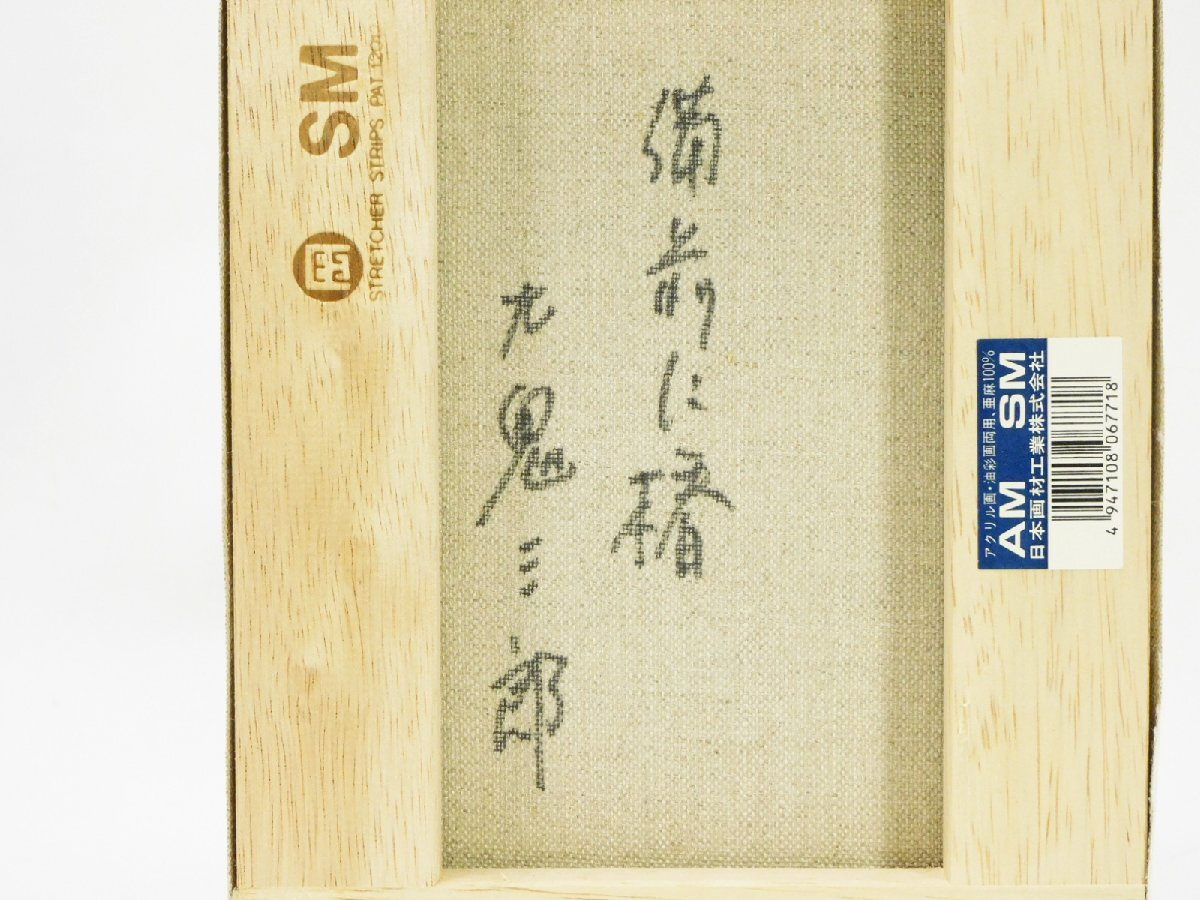 備前に椿
九鬼三郎
SM
STRETCHER STRIPS PAT
アクリル画・油彩画両用、亜麻100%
AM SM
日本画材工業株式会社
4 947108 067718